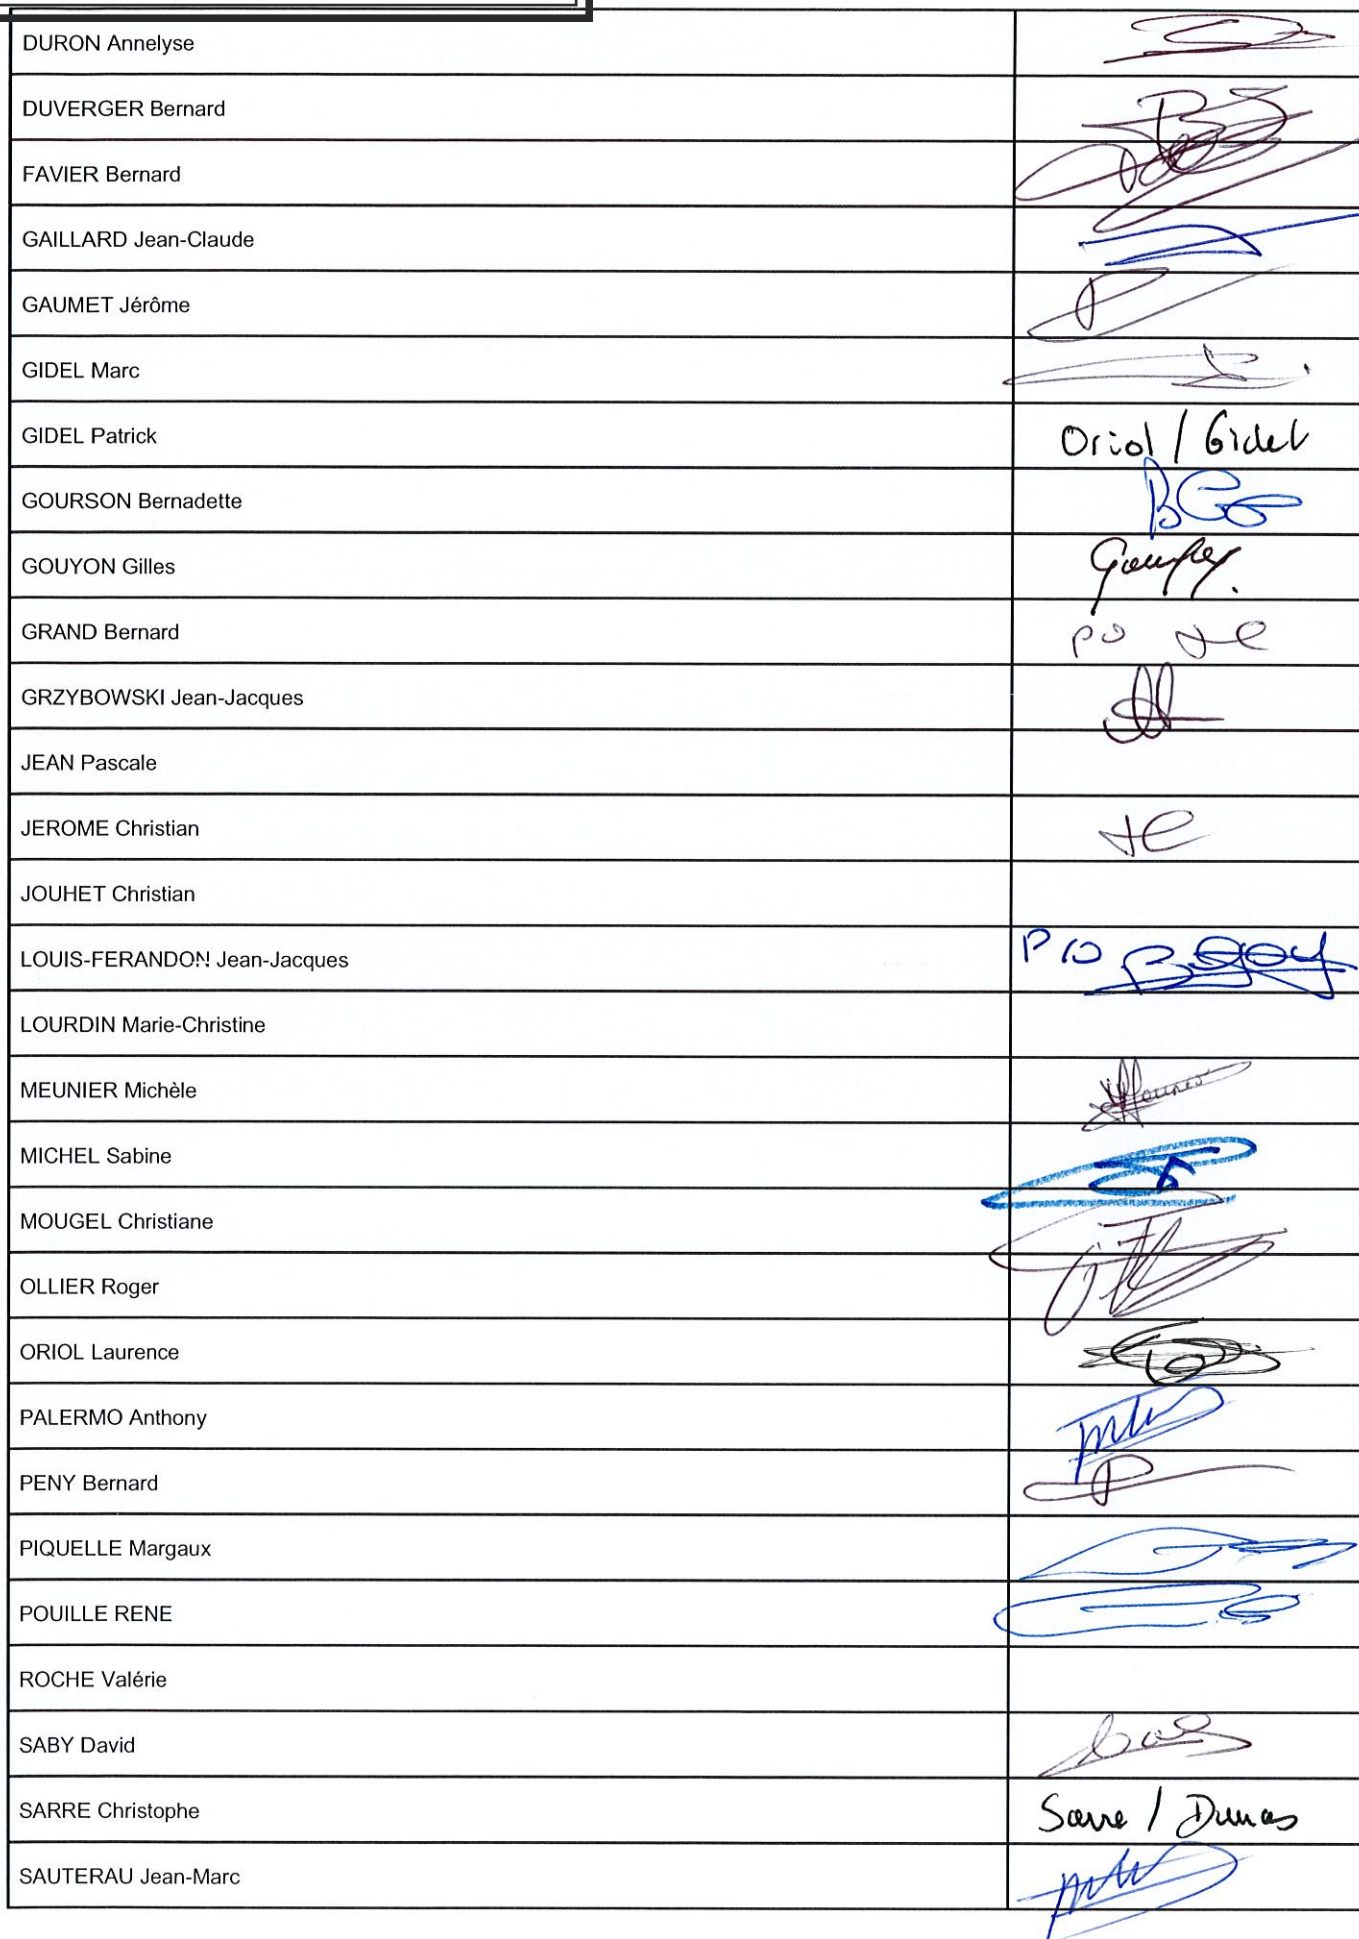 DURON Annelyse
DUVERGER Bernard
FAVIER Bernard
GAILLARD Jean-Claude
GAUMET Jérôme
GIDEL Marc
GIDEL Patrick Oriol / Gidel
GOURSON Bernadette
GOUYON Gilles
GRAND Bernard PO
GRZYBOWSKI Jean-Jacques
JEAN Pascale
JEROME Christian
JOUHET Christian
LOUIS-FERANDON Jean-Jacques PO
LOURDIN Marie-Christine
MEUNIER Michèle
MICHEL Sabine
MOUGEL Christiane
OLLIER Roger
ORIOL Laurence
PALERMO Anthony
PENY Bernard
PIQUELLE Margaux
POUILLE RENE
ROCHE Valérie
SABY David
SARRE Christophe Sarre / Dumas
SAUTERAU Jean-Marc